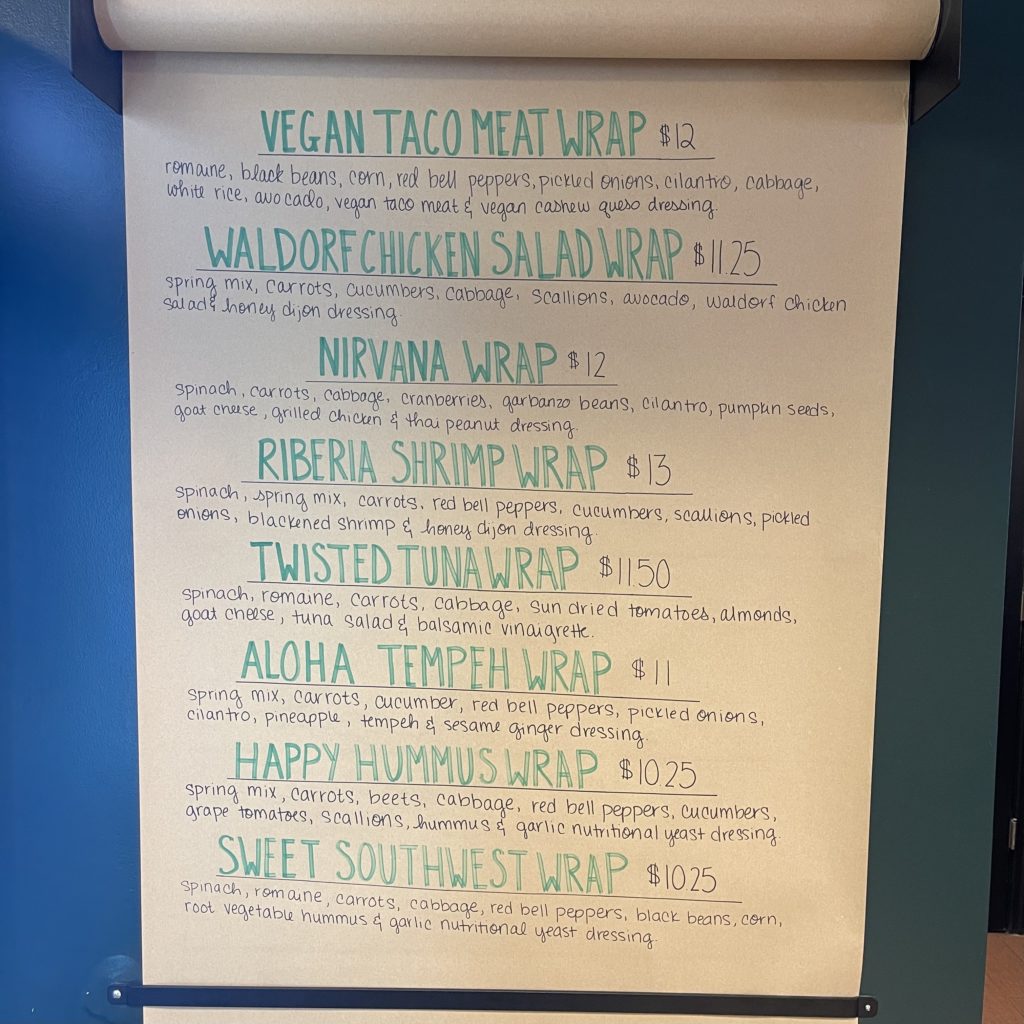 VEGAN TACO MEAT WRAP $12
romaine, black beans, corn, red bell peppers, pickled onions, cilantro, cabbage,
white rice, avocado, vegan taco meat & vegan cashew queso dressing.
WALDORF CHICKEN SALAD WRAP $11.25
spring mix, carrots, cucumbers, cabbage, scallions, avocado, waldorf chicken
salad & honey dijon dressing
NIRVANA WRAP $12
spinach, carrots, cabbage, cranberries, garbanzo beans, cilantro, pumpkin seeds,
goat cheese, grilled chicken & thai peanut dressing.
RIBERIA SHRIMP WRAP $13
spinach, spring mix, carrots, red bell peppers, cucumbers, scallions, pickled
onions, blackened shrimp & honey dijon dressing.
TWISTED TUNA WRAP $11.50
spinach, romaine, carrots, cabbage, sun dried tomatoes, almonds,
goat cheese, tuna salad & balsamic vinaigrette.
ALOHA TEMPEH WRAP $11
spring mix, carrots, cucumber, red bell peppers, pickled onions,
cilantro, pineapple, tempeh & sesame ginger dressing.
HAPPY HUMMUS WRAP $10.25
spring mix, carrots, beets, cabbage, red bell peppers, cucumbers,
grape tomatoes, scallions, hummus & garlic nutritional yeast dressing.
SWEET SOUTHWEST WRAP $10.25
spinach, romaine, carrots, cabbage, red bell peppers, black beans, corn,
root vegetable hummus & garlic nutritional yeast dressing.